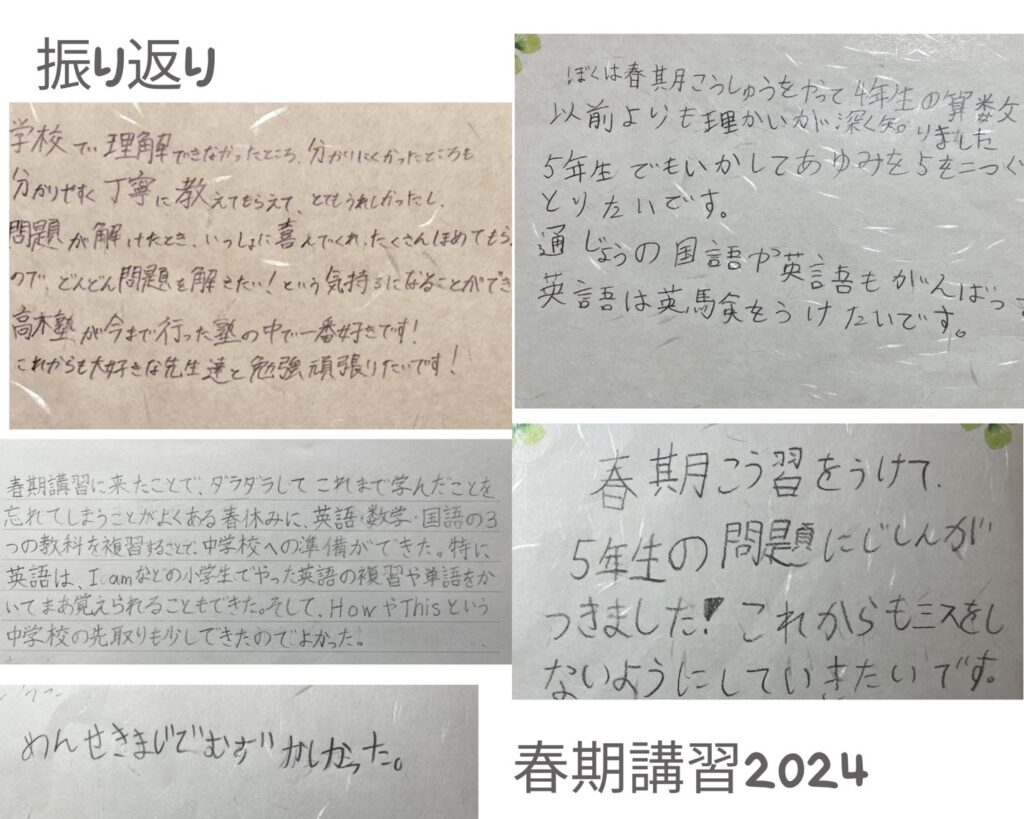 振り返り
学校で、理解できなかったところ、分かりにくかったところも
分かりやすく丁寧に教えてもらえて、とてもうれしかったし、
問題が解けたとき、いっしょに喜んでくれ、たくさんほめてもら
ので、どんどん問題を解きたい！という気持ちになることができ
高木塾が今まで行った塾の中で一番好きです！
これからも大好きな先生達と勉強頑張りたいです！
ぼくは春期こうしゅうをやって4年生の算数文
以前よりも理かいが深くなりました
5年生でもいかしてあゆみを5を二つぐ
とりたいです。
通じょうの国語や英語もがんばっ
英語は英検をうけたいです。
春期講習に来たことで、ダラダラしてこれまで学んだことを
忘れてしまうことがよくある春休みに、英語・数学・国語の3
つの教科を複習することで、中学校への準備ができた。特に
英語は、I amなどの小学生でやった英語の複習や単語をか
いてまあ覚えられることもできた。そして、HowやThisという
中学校の先取りも少しできたのでよかった。
春期こう習をうけて、
5年生の問題にじしんが
つきました！これからもミスをし
ないようにしていきたいです。
めんせきまじでむずかしかった。
春期講習2024